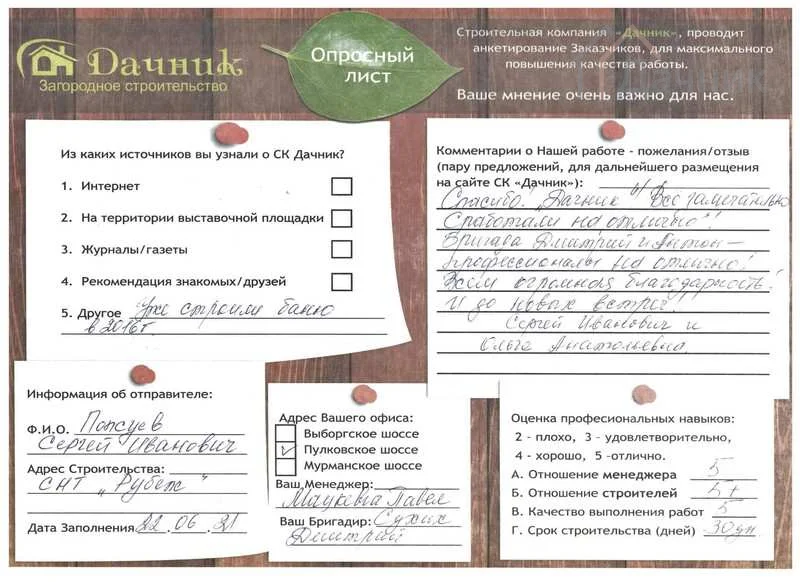 Дачник
Загородное строительство
Опросный
лист
Строительная компания «Дачник», проводит
анкетирование Заказчиков, для максимального
повышения качества работы.
Ваше мнение очень важно для нас.
Из каких источников вы узнали о СК Дачник?
1. Интернет
2. На территории выставочной площадки
3. Журналы/газеты
4. Рекомендация знакомых/друзей
5. Другое Уже строили баню
в 2016г
Комментарии о Нашей работе - пожелания/отзыв
(пару предложений, для дальнейшего размещения
на сайте СК «Дачник»):
Спасибо! "Дачник" Все замечательно
Сработали на отлично"!
Бригада Дмитрий и Антон —
профессионалы на отлично!
Всем огромная благодарность!
И до новых встреч.
Сергей Иванович и
Ольга Анатольевна.
Информация об отправителе:
Ф.И.О.
Сергей Иванович
Адрес Строительства:
СНТ "Рубеж"
Дата Заполнения 22.06.21
Адрес Вашего офиса:
Выборгское шоссе
Пулковское шоссе
Мурманское шоссе
Ваш Менеджер:
Павел
Ваш Бригадир: Сухих
Дмитрий
Оценка професиональных навыков:
2 - плохо, 3 - удовлетворительно,
4 - хорошо, 5 -отлично.
А. Отношение менеджера 5
Б. Отношение строителей 5+
В. Качество выполнения работ 5
Г. Срок строительства (дней) 30дн.